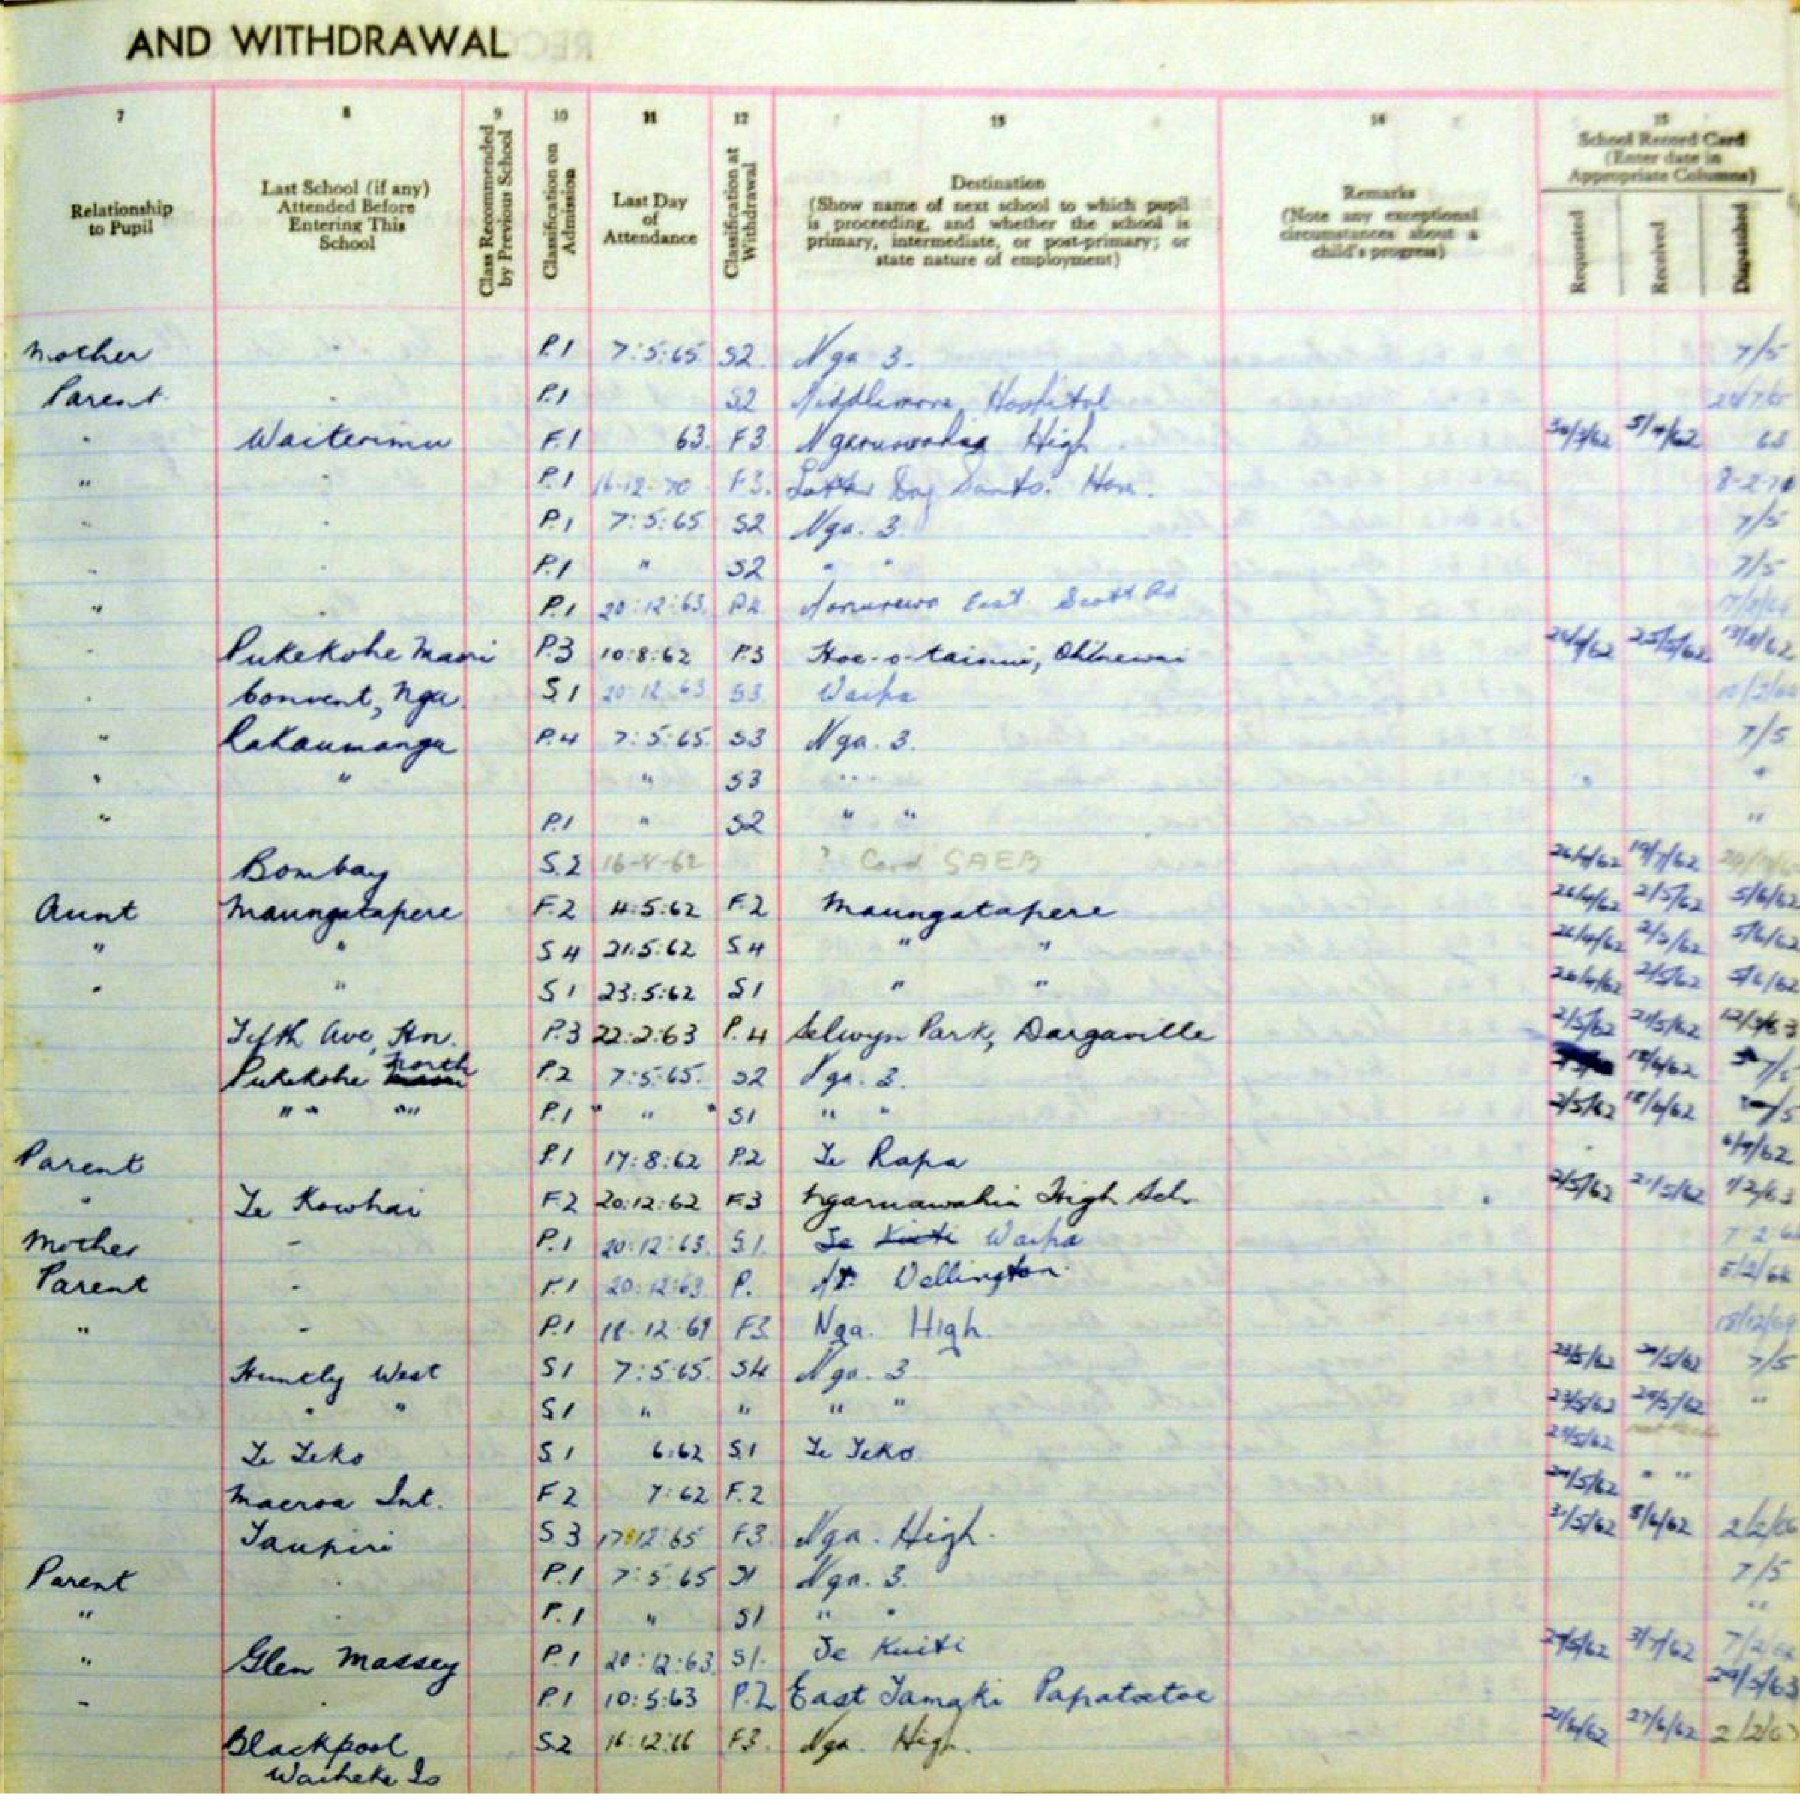 AND WITHDRAWAL
7 8 9 10 11 12 13 14 15
Relationship to Pupil
Last School (if any) Attended Before Entering This School
Class Recommended by Previous School
Classification on Admission
Last Day of Attendance
Classification at Withdrawal
Destination
(Show name of next school to which pupil is proceeding, and whether the school is primary, intermediate, or post-primary; or state nature of employment)
Remarks
(Note any exceptional circumstances about a child's progress)
School Record Card
(Enter date in Appropriate Columns)
Requested Received Dispatched
Mother P.1 7:5:65 S2. Nga 3. 7/5
Parent P.1 S2 Middlemore Hospital
" Waiterimu F.1 63. F3 Ngaruawahia High 30/3/62 5/4/62 63
" P.1 16-12-70 F3. Latter Day Saints. Ham.
" P.1 7:5:65 S2 Nga. 3. 7/5
" P.1 " S2 " " 7/5
" P.1 20:12:63. P2 East Scott Rd
" Pukekohe Maori P.3 10:8:62 P.3 25/5/62 13/8/62
" Convent, Nga. S1 20:12:63. S3. Waipa
" Rakaumanga P.4 7:5:65. S3 Nga. 3. 7/5
" " " S3 " " "
" P.1 " S2 " " "
Bombay S.2 ? Card 26/4/62 19/7/62
Aunt Maungatapere F.2 4:5:62 F.2 Maungatapere 26/4/62 2/5/62 5/6/62
" " S4 21:5:62 S4 " " 26/4/62 2/5/62 5/6/62
" " S1 23:5:62 S1 " " 26/4/62 2/5/62 5/6/62
Fifth Ave, Ham. P.3 22:2:63 P.4 Selwyn Park, Dargaville 2/5/62 21/5/62
Pukekohe Maori North P.2 7:5:65. S2 Nga. 3. 18/6/62 7/5
" " " P.1 " " " S1 " " 2/5/62 18/6/62 7/5
Parent P.1 17:8:62 P.2 Te Rapa 6/9/62
" Te Kowhai F2 20:12:62 F3 Ngaruawahia High Sch. 2/5/62 21/5/62 1/2/63
Mother - P.1 20:12:63. S1. Te Kuiti Waipa
Parent - P.1 20:12:63. P. Mt. Wellington.
" - P.1 18-12-69 F3 Nga. High. 18/12/69
Huntly West S1 7:5:65. S4 Nga. 3 7/5
" " S1 " " " " "
Te Teko S.1 6:62 S.1 Te Teko
Maeroa Int. F2 7:62 F.2 " "
Taupiri S3 17:12:65 F3. Nga. High. 31/5/62 8/6/62 2/2/66
Parent P.1 7:5:65 S1 Nga. 3. 7/5
" P.1 " S1 " " "
" Glen Massey P.1 20:12:63. S1. Te Kuiti 29/5/62 3/7/62
" P.1 10:5:63 P.2 East Tamaki Papatoetoe 29/5/63
Blackpool S.2 16:12:66 F3. Nga. High. 21/6/62 27/6/62 2/2/67
Waiheke Is